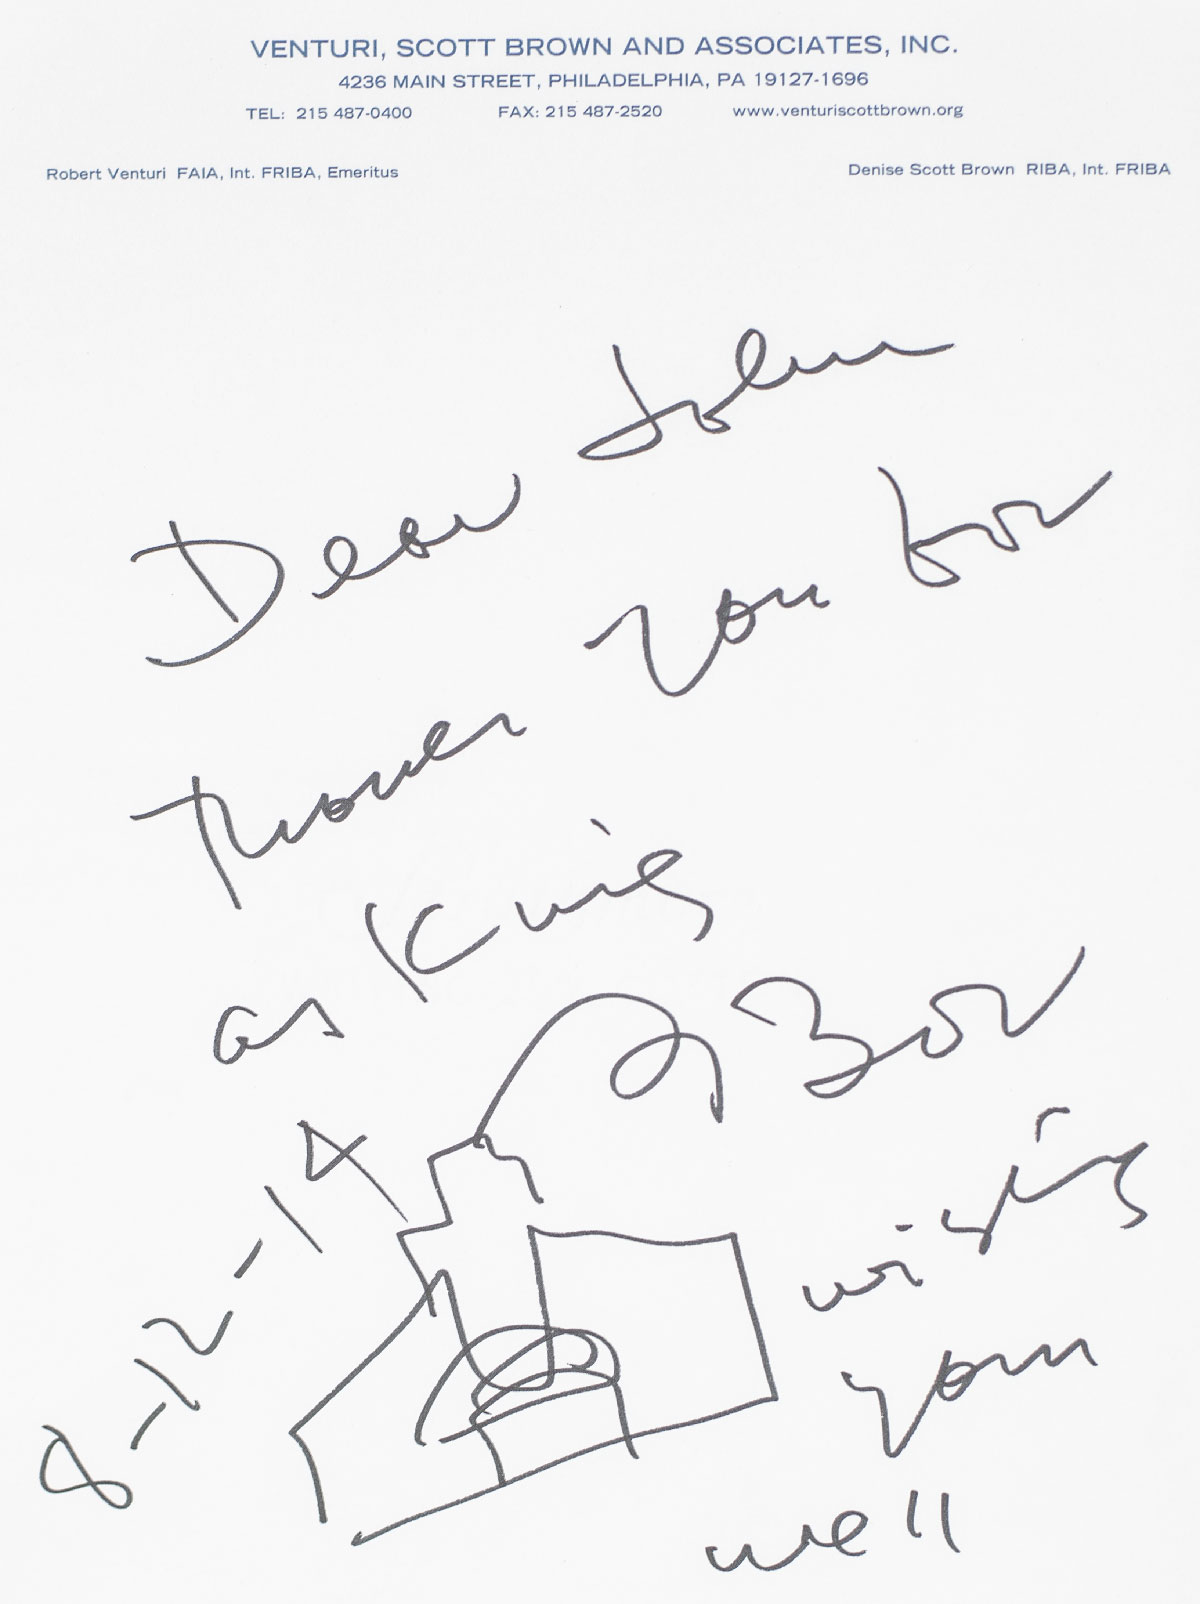 VENTURI, SCOTT BROWN AND ASSOCIATES, INC.
4236 MAIN STREET, PHILADELPHIA, PA 19127-1696
TEL: 215 487-0400 FAX: 215 487-2520 www.venturiscottbrown.org
Robert Venturi FAIA, Int. FRIBA, Emeritus Denise Scott Brown RIBA, Int. FRIBA
Dear John
you for
as
8-12-14
wishing
you
well